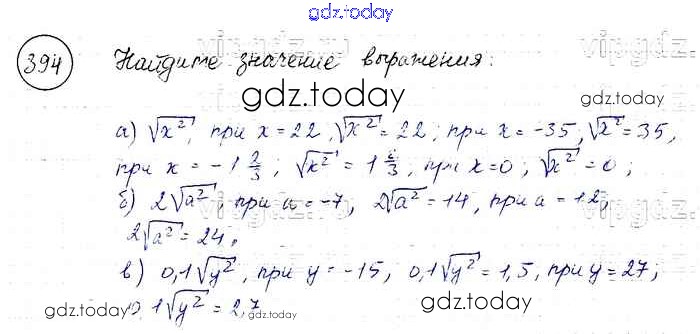 gdz.today
394 Найдите значение выражения:
gdz.today
а) √x², при x = 22, √x² = 22; при x = -35, √x² = 35,
при x = -1 2/3; √x² = 1 2/3, при x = 0; √x² = 0;
б) 2√a², при a = -7, 2√a² = 14, при a = 12;
2√a² = 24.
в) 0,1√y², при y = -15, 0,1√y² = 1,5, при y = 27;
0,1√y² = 2,7
gdz.today
gdz.today
gdz.today